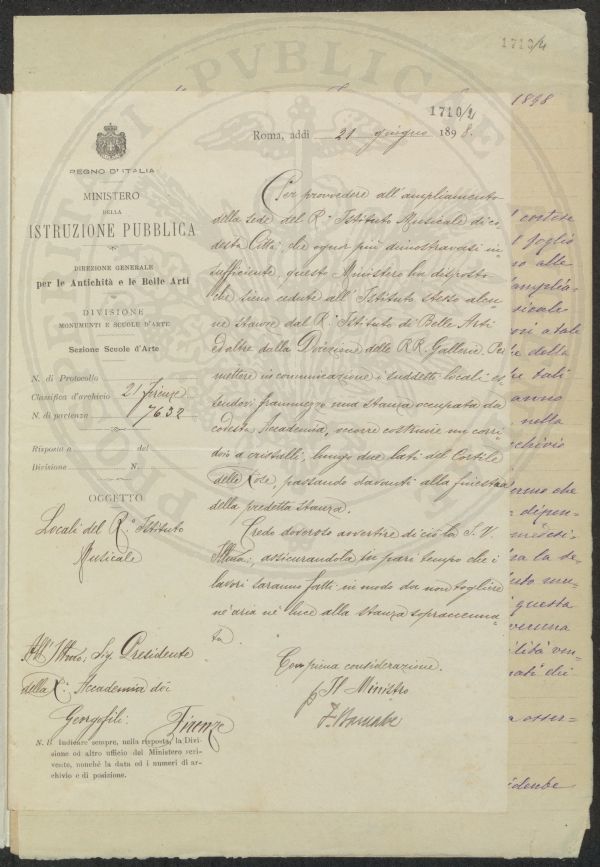 1710/4
1898
1710/2
Roma, addì 21 giugno 1898.
REGNO D'ITALIA
MINISTERO
DELLA
ISTRUZIONE PUBBLICA
DIREZIONE GENERALE
per le Antichità e le Belle Arti
DIVISIONE
MONUMENTI E SCUOLE D'ARTE
Sezione Scuole d'Arte
N. di Protocollo
Classifica d'archivio 21 Firenze
N. di partenza 7632
Risposta a del
Divisione N.
OGGETTO
Locali del R.º Istituto
Musicale
All' Illmo. Sig. Presidente
della R. Accademia dei
Georgofili. Firenze
N. B. Indicare sempre, nella risposta, la Divi-
sione od altro ufficio del Ministero scri-
vente, nonchè la data ed i numeri di ar-
chivio e di posizione.
Per provvedere all'ampliamento
della sede del R.º Istituto Musicale di co
desta Città, che ognor più dimostravasi in=
sufficiente, questo Ministero ha disposto
che sieno cedute all'Istituto stesso alcu=
ne stanze dal R.º Istituto di Belle Arti
ed altre dalla Direzione delle RR. Gallerie. Per
mettere in comunicazione i suddetti locali es
sendovi frammezzo una stanza occupata da
codesta Accademia, occorre costruire un corri
doio a cristalli, lungo due lati del Cortile
delle Rose, passando davanti alla finestra
della predetta stanza.
Credo doveroso avvertire di ciò la S. V.
Illma., assicurandola in pari tempo che i
lavori saranno fatti in modo da non togliere
nè aria nè luce alla stanza sopraccenna=
ta.
Con piena considerazione.
p Il Ministro
F. Barnabei
cortese
foglio
no alle
amplia=
sicale
della
tali
anno
nella
chivio
che
dipen=
la de=
questa
veruna
ilità
nati dei
a osser=
idente